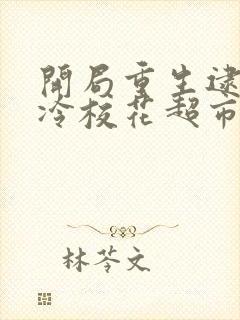 開局重生逮
冷校花超市
林苓文